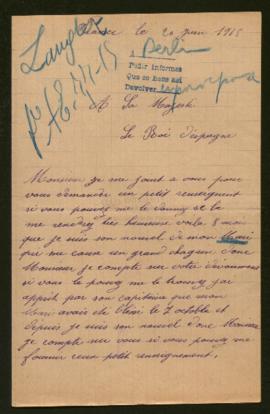 le 20 Juin 1915
Berlin
A
Pedir informes
Que se haga así
Devolver
A Sa Majesté
Le Roi d'espagne
Monsieur je me joint a vous pour
vous demandée un petit renseigment
si vous pouvez me le donnez se la
me rendrez très heureuse voila 8 mois
que je suis son nouvel de mon Mari
qui me cause un grand chagrin donc
Monsieur je compte sur votre dévoument
si vous le pouvez me le trouvez j'ai
apprit par son capitaine que mon
Mari avais été le 2 octobre et
depuis je suis son nouvel donc Monsieur
je compte sur vous si vous pouvez me
fournir ceux petit renseignement.